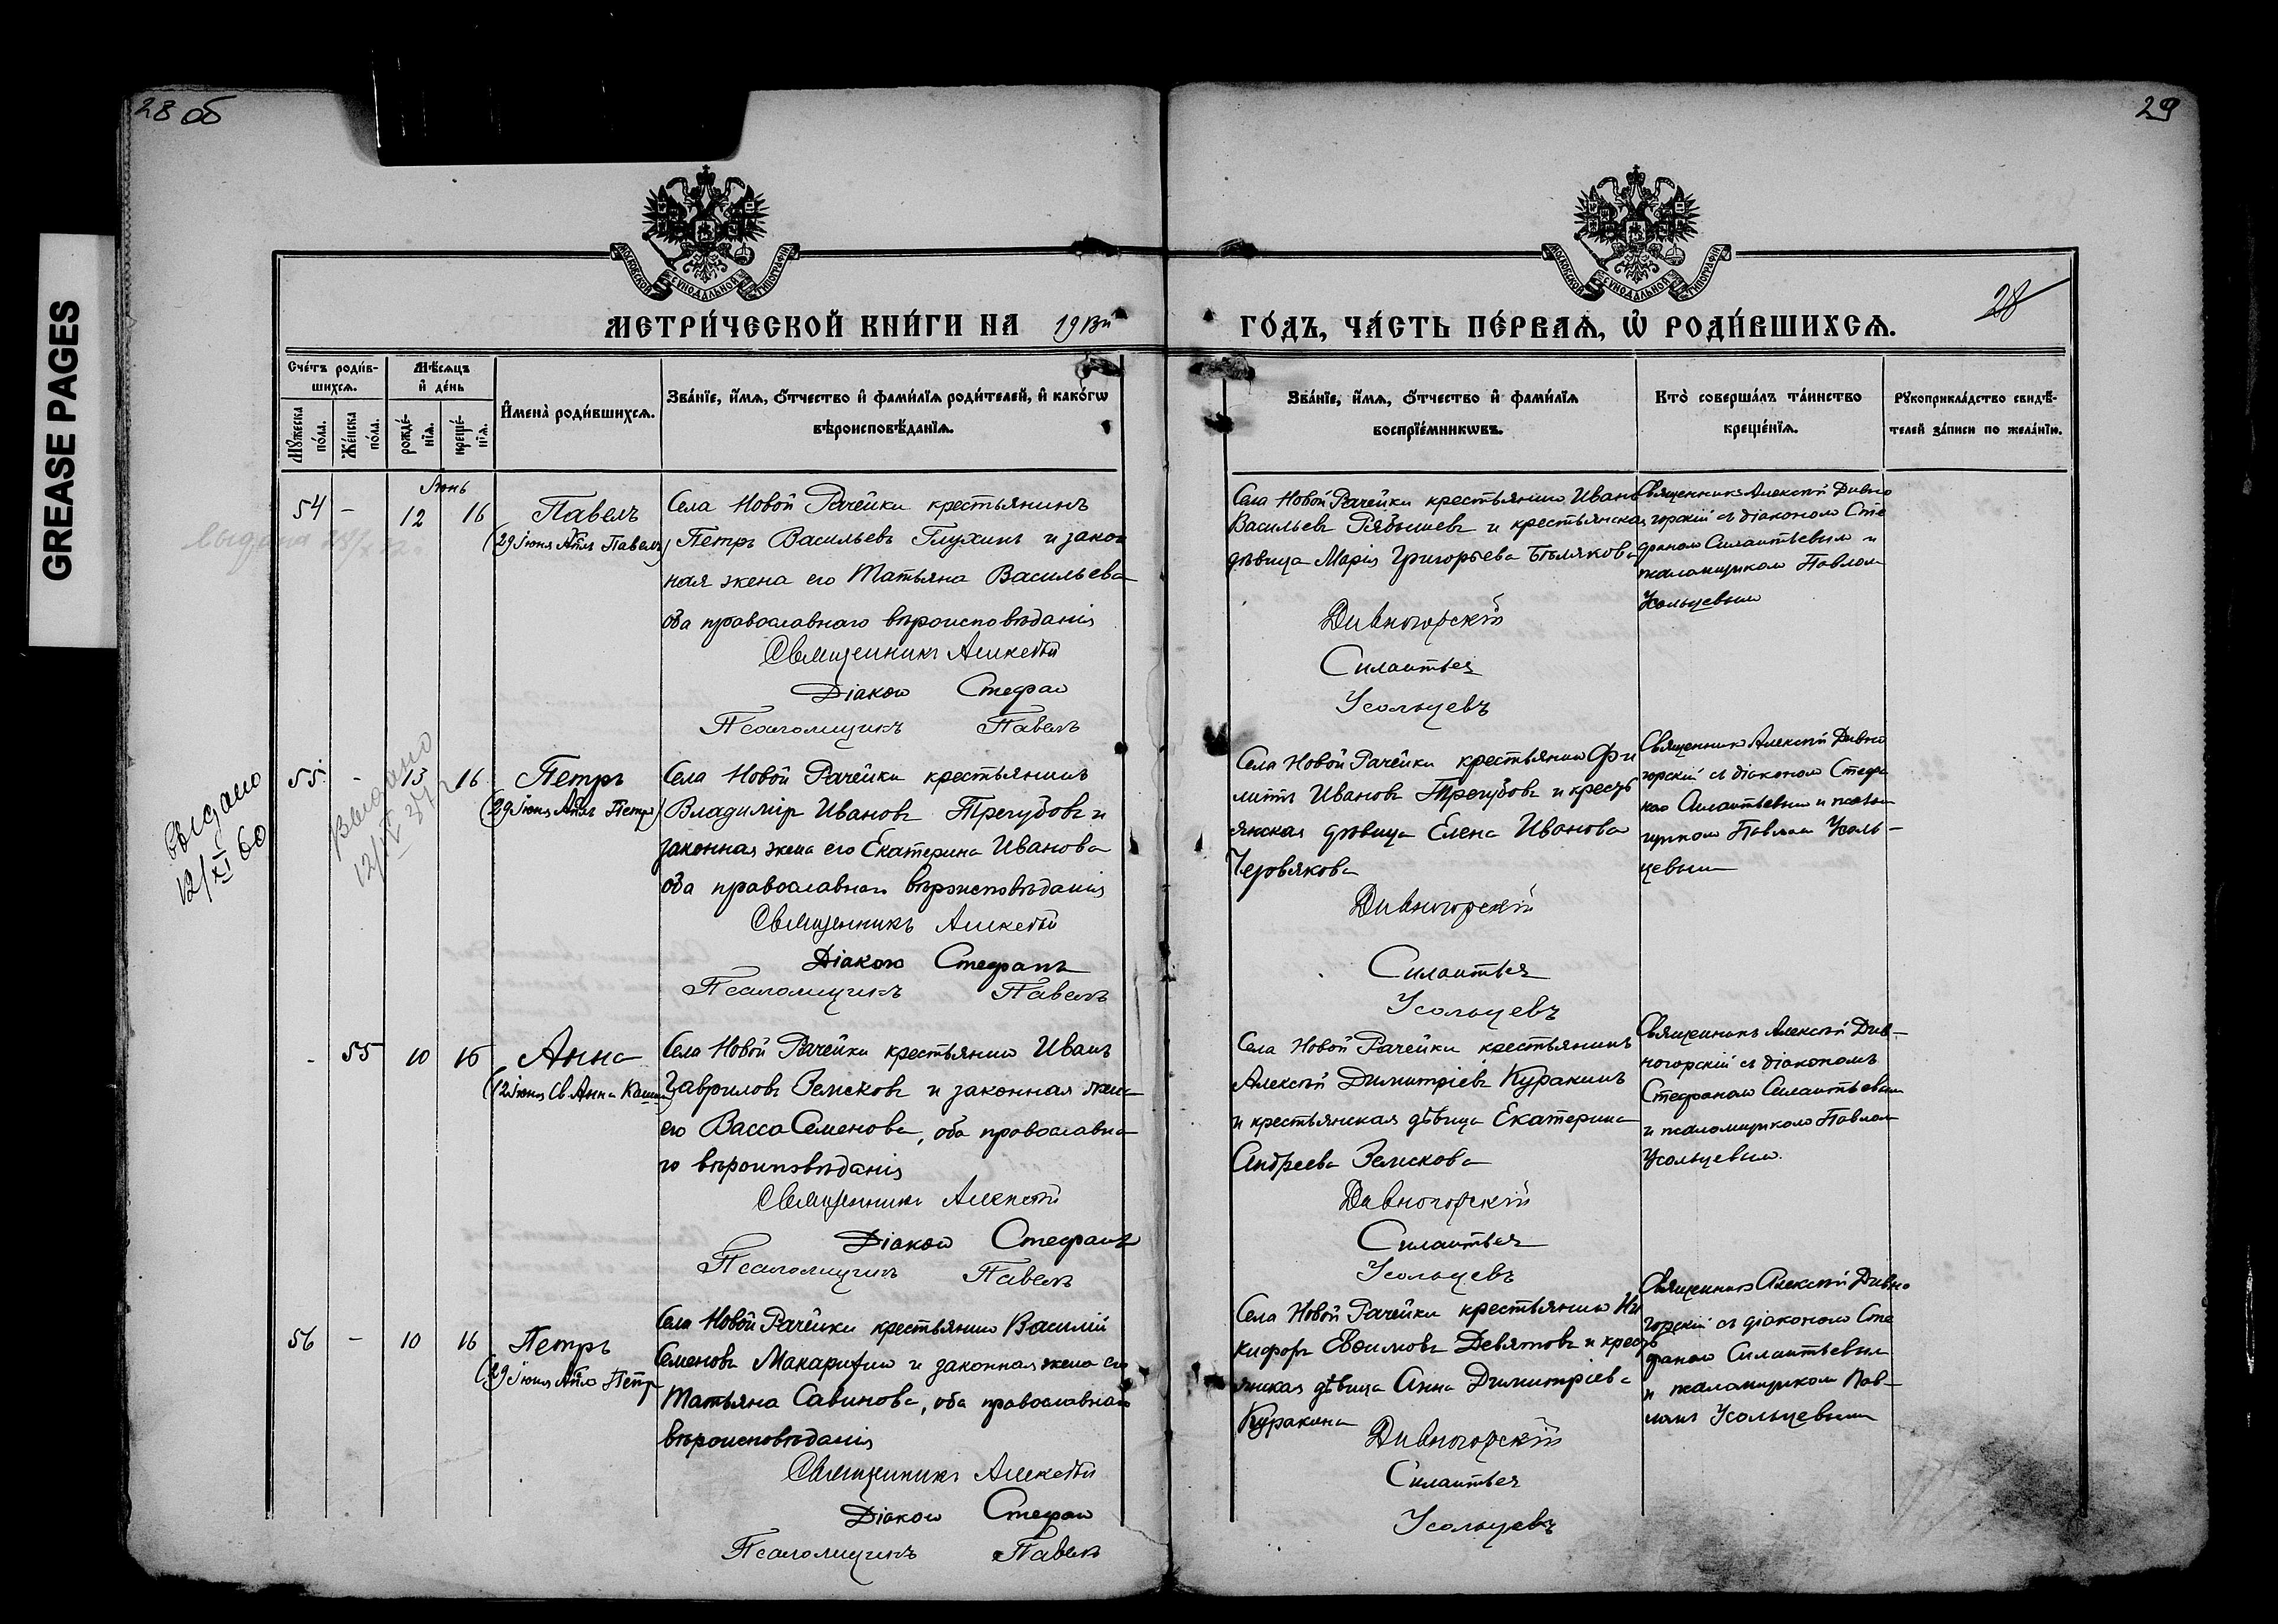 GREASE PAGES
28 об
29
28
МОСКОВСКОЙ СѴНОДАЛЬНОЙ ТИПОГРАФІИ
МОСКОВСКОЙ СѴНОДАЛЬНОЙ ТИПОГРАФІИ
МЕТРИ́ЧЕСКОЙ КНИ́ГИ НА
ГО́ДЪ, ЧА́СТЬ ПЕ́РВАѦ, Ѡ҆ РОДИ́ВШИХСѦ.
Сче́тъ роди́в-
шихсѧ.
Мѣ́сѧцъ
и҆ де́нь
Мꙋ́жеска
по́ла.
Же́нска
по́ла.
рожде́-
нїѧ.
креще́-
нїѧ.
И҆мена̀ роди́вшихсѧ.
Зва́нїе, и҆́мѧ, ѻ҆́тчество и҆ фами́лїѧ роди́телей, и҆ како́гѡ
вѣроисповѣ́данїѧ.
Зва́нїе, и҆́мѧ, ѻ҆́тчество и҆ фами́лїѧ
воспрїе́мникѡвъ.
Кто̀ соверша́лъ та́инство
креще́нїѧ.
Рꙋкоприкла́дство свидѣ́-
телей за́писи по жела́нїю.
Іюнь
54 - 12 16
Павелъ
(29 іюня Апл Павелъ)
Села Новой Рачейки крестьянинъ
Петръ Васильевъ Глухинъ и закон
ная жена его Татьяна Васильева
оба православнаго вѣроисповѣданія
Священникъ Алексѣй
Діакон Стефан
Псаломщикъ Павелъ
Села Новой Рачейки крестьянин Иван
Васильевъ Рябышевъ и крестьянская
дѣвица Марія Григорьева Бѣлякова
Дивногорскій
Силантьев
Усольцевъ
Священникъ Алексѣй Дивно
горскій съ діаконом Сте
фаном Силантьевым и
псаломщиком Павлом
Усольцевым
Выдано
12/XI 60
Выдано
55 - 13 16
Петръ
(29 іюня Апл Петр)
Села Новой Рачейки крестьянинъ
Владиміръ Ивановъ Трегубовъ и
законная жена его Екатерина Иванова
оба православнаго вѣроисповѣданія
Священникъ Алексѣй
Діакон Стефанъ
Псаломщикъ Павелъ
Села Новой Рачейки крестьянин Фи
липпъ Ивановъ Трегубовъ и кресть
янская дѣвица Елена Иванова
Червякова
Дивногорскій
Силантьев
Усольцевъ
Священник Алексѣй Дивно
горскій съ діаконом Стефа
ном Силантьевым и псалом
щиком Павлом Усоль-
цевым
- 55 10 16
Анна
(12 іюня Св Анна Кашин)
Села Новой Рачейки крестьянин Иванъ
Гавриловъ Земсковъ и законная жена
его Васса Семенова, оба православна
го вѣроисповѣданія
Священникъ Алексѣй
Діакон Стефанъ
Псаломщикъ Павелъ
Села Новой Рачейки крестьянинъ
Алексѣй Димитріевъ Куракинъ
и крестьянская дѣвица Екатерина
Андреева Земскова
Дивногорскій
Силантьев
Усольцевъ
Священникъ Алексѣй Див-
ногорскій съ діакономъ
Стефаном Силантьевым
и псаломщиком Павлом
Усольцевым.
56 - 10 16
Петръ
(29 іюня Апл Петр
Села Новой Рачейки крестьянин Василій
Семеновъ и законная жена его
Татьяна Савинова, оба православнаго
вѣроисповѣданія
Священникъ Алексѣй
Діакон Стефан
Псаломщикъ Павелъ
Села Новой Рачейки крестьянин Ни
кифоръ Евѳимовъ Девятовъ и кресть
янская дѣвица Анна Димитріева
Куракина
Дивногорскій
Силантьев
Усольцевъ
Священникъ Алексѣй Дивно
горскій съ діаконом Сте
фаном Силантьевым
и псаломщиком Пав-
ломъ Усольцевым